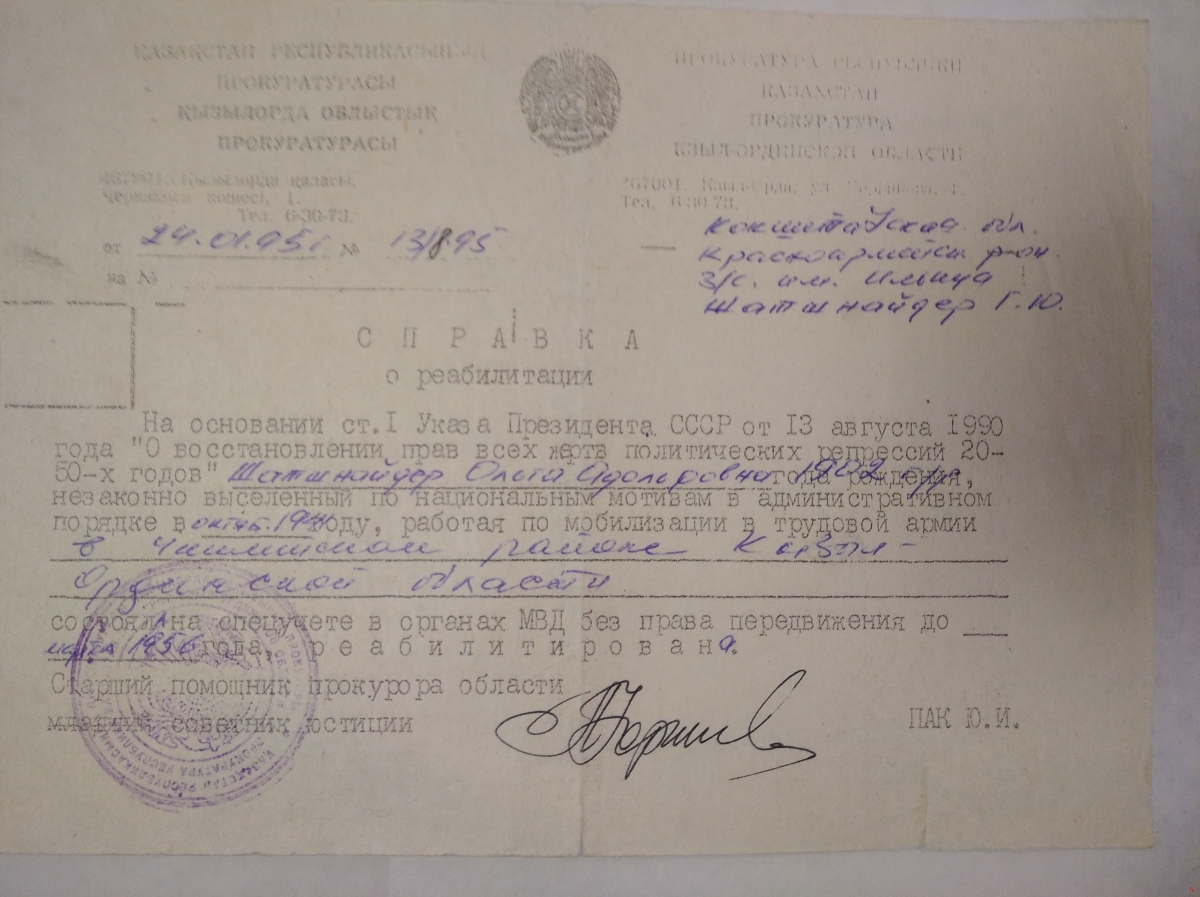 ҚАЗАҚСТАН РЕСПУБЛИКАСЫНЫҢ
ПРОКУРАТУРАСЫ
ҚЫЗЫЛОРДА ОБЛЫСТЫҚ
ПРОКУРАТУРАСЫ
Қызылорда қаласы,
көшесі, 1.
Тел. 6-30-73.
ПРОКУРАТУРА РЕСПУБЛИКИ
КАЗАХСТАН
ПРОКУРАТУРА
КЗЫЛ-ОРДИНСКОЙ ОБЛАСТИ
Кзыл-Орда, ул.
Тел. 6-30-73.
от 24.01.95г. № 13/8.95
на №
Кокшетауская обл.
Красноармейск. р-он.
З/с. им. Ильича
Шатшнайдер Г.Ю.
СПРАВКА
о реабилитации
На основании ст.I Указа Президента СССР от 13 августа 1990
года "О восстановлении прав всех жертв политических репрессий 20-
50-х годов" Шатшнайдер Ольга Адольфовна 1902 года рождения,
незаконно выселенный по национальным мотивам в административном
порядке в октяб. году, работая по мобилизации в трудовой армии
в районе Кзыл-
Ординской области
состоял на спецучете в органах МВД без права передвижения до
марта 1956 года, реабилитирована.
Старший помощник прокурора области
младший советник юстиции
ПАК Ю.И.